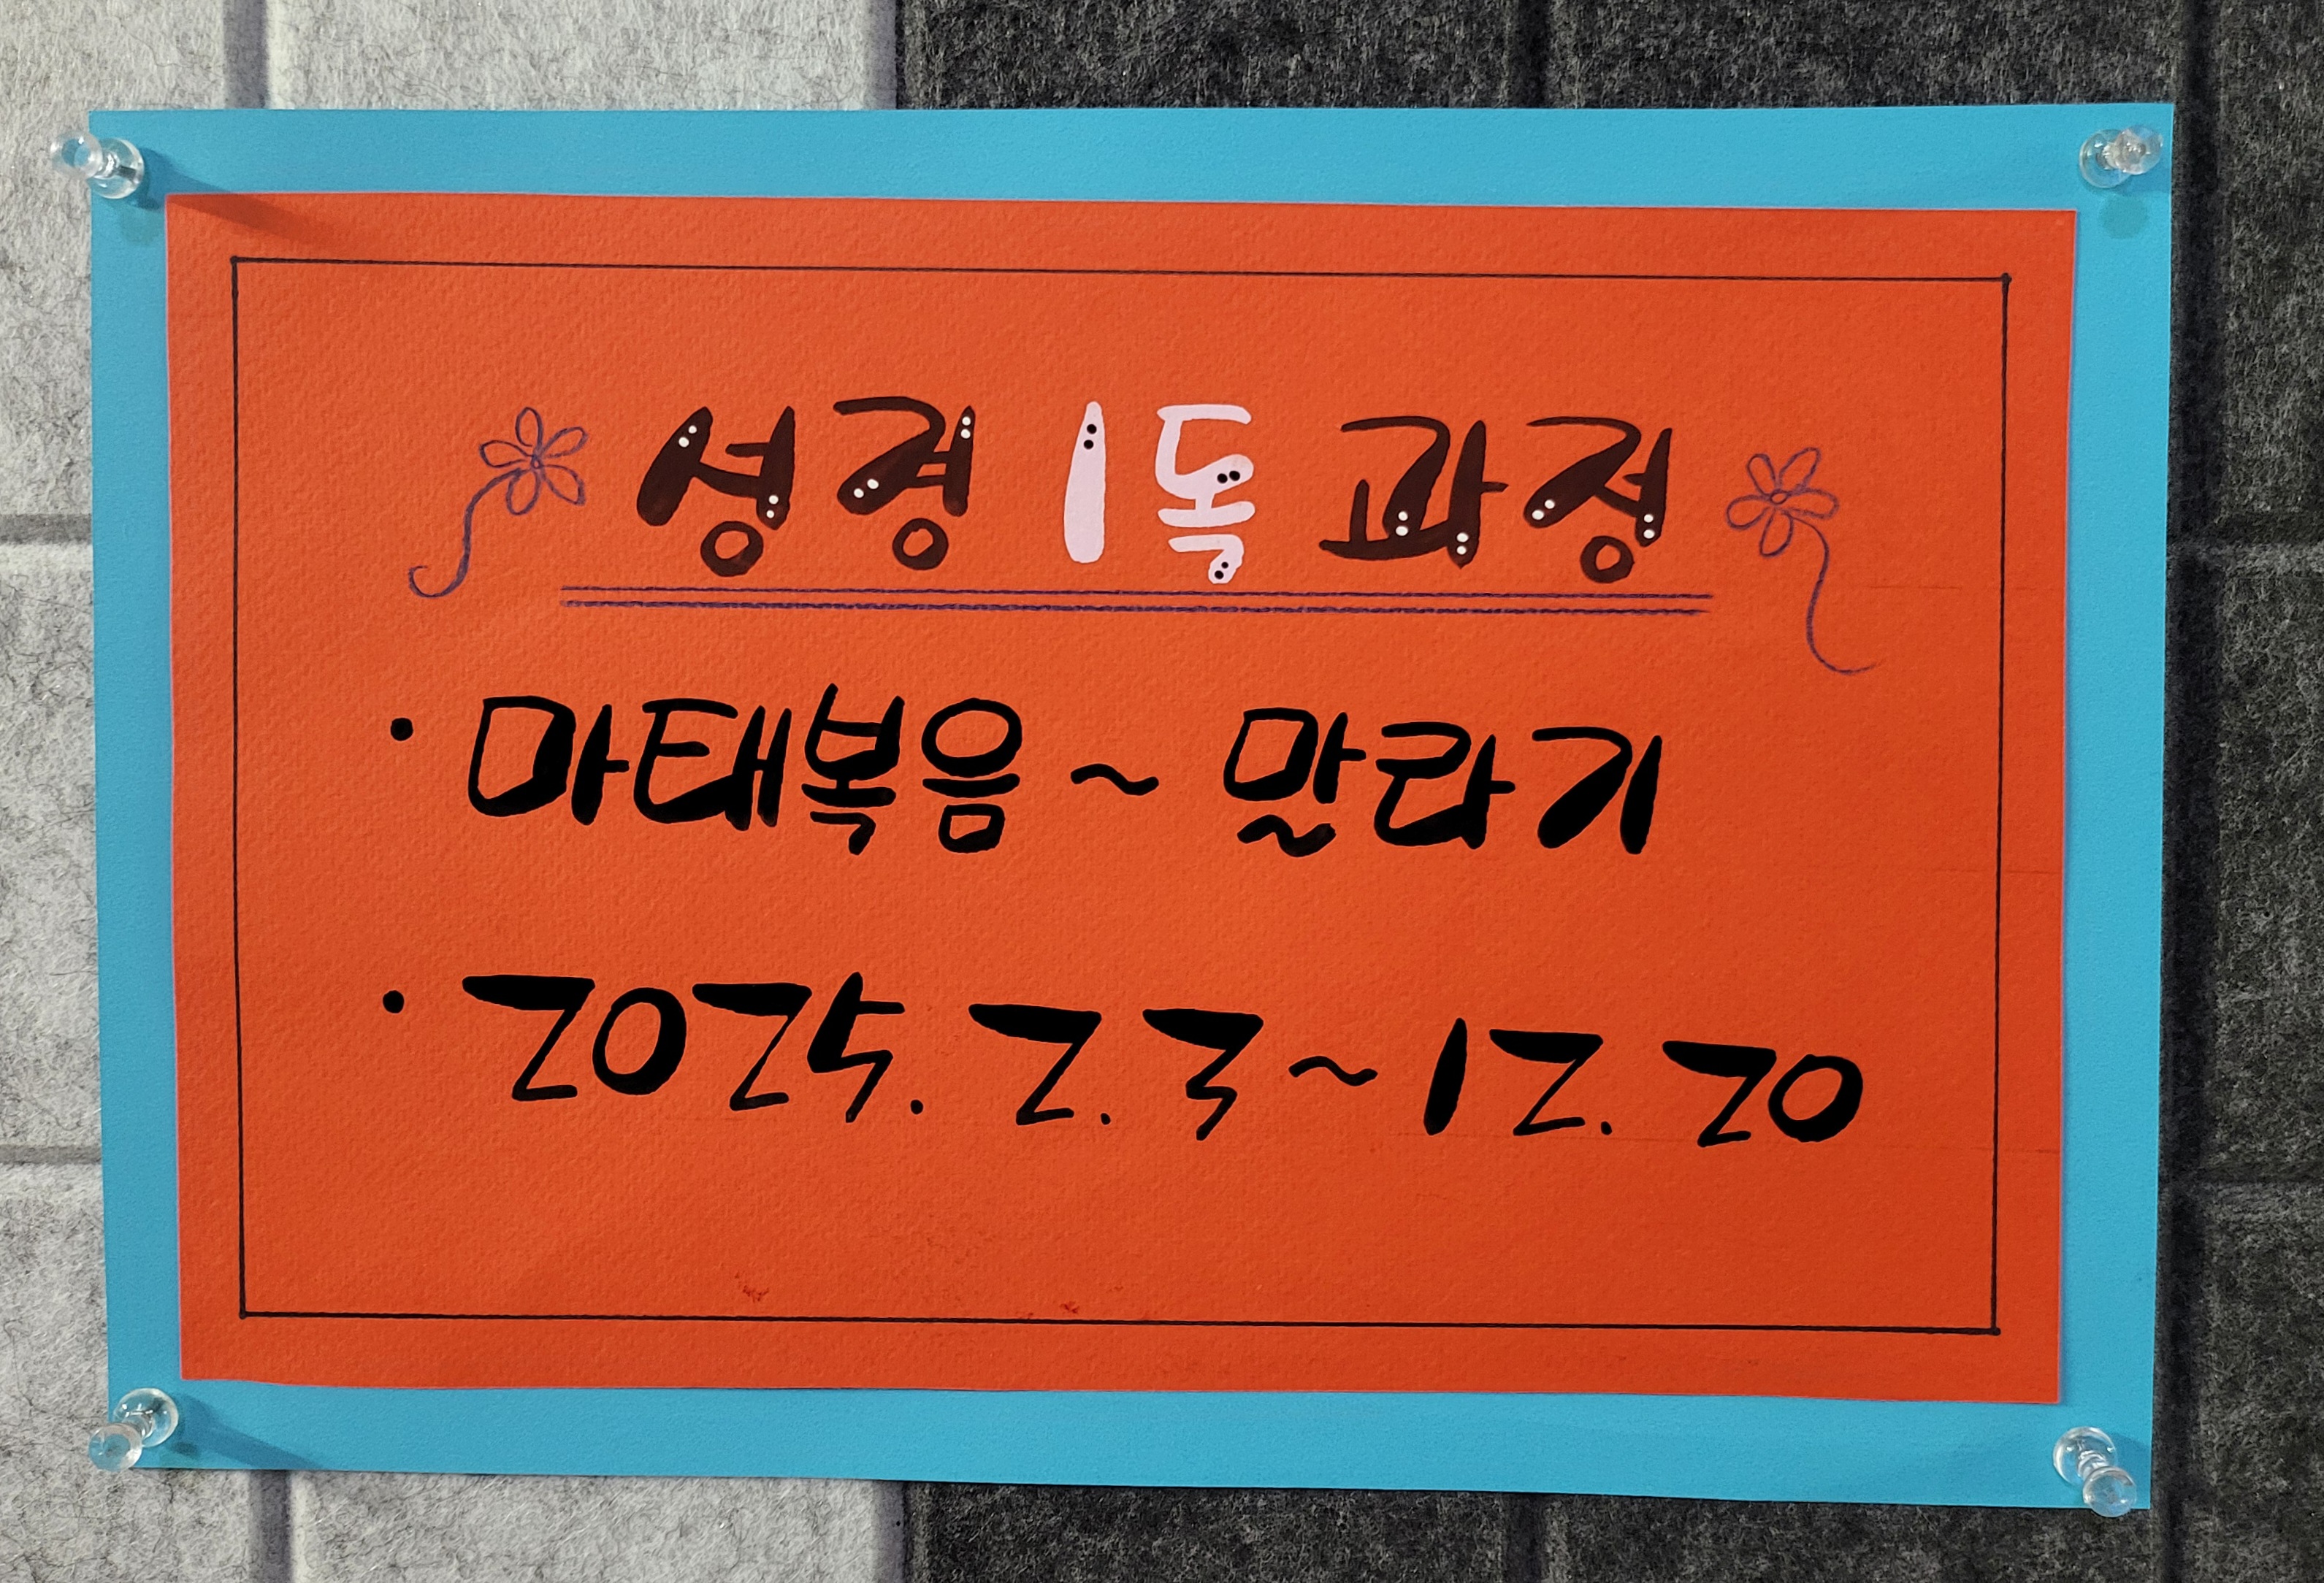 성경 1독 과정
· 마태복음 ~ 말라기
· 2025. 2. 3 ~ 12. 20